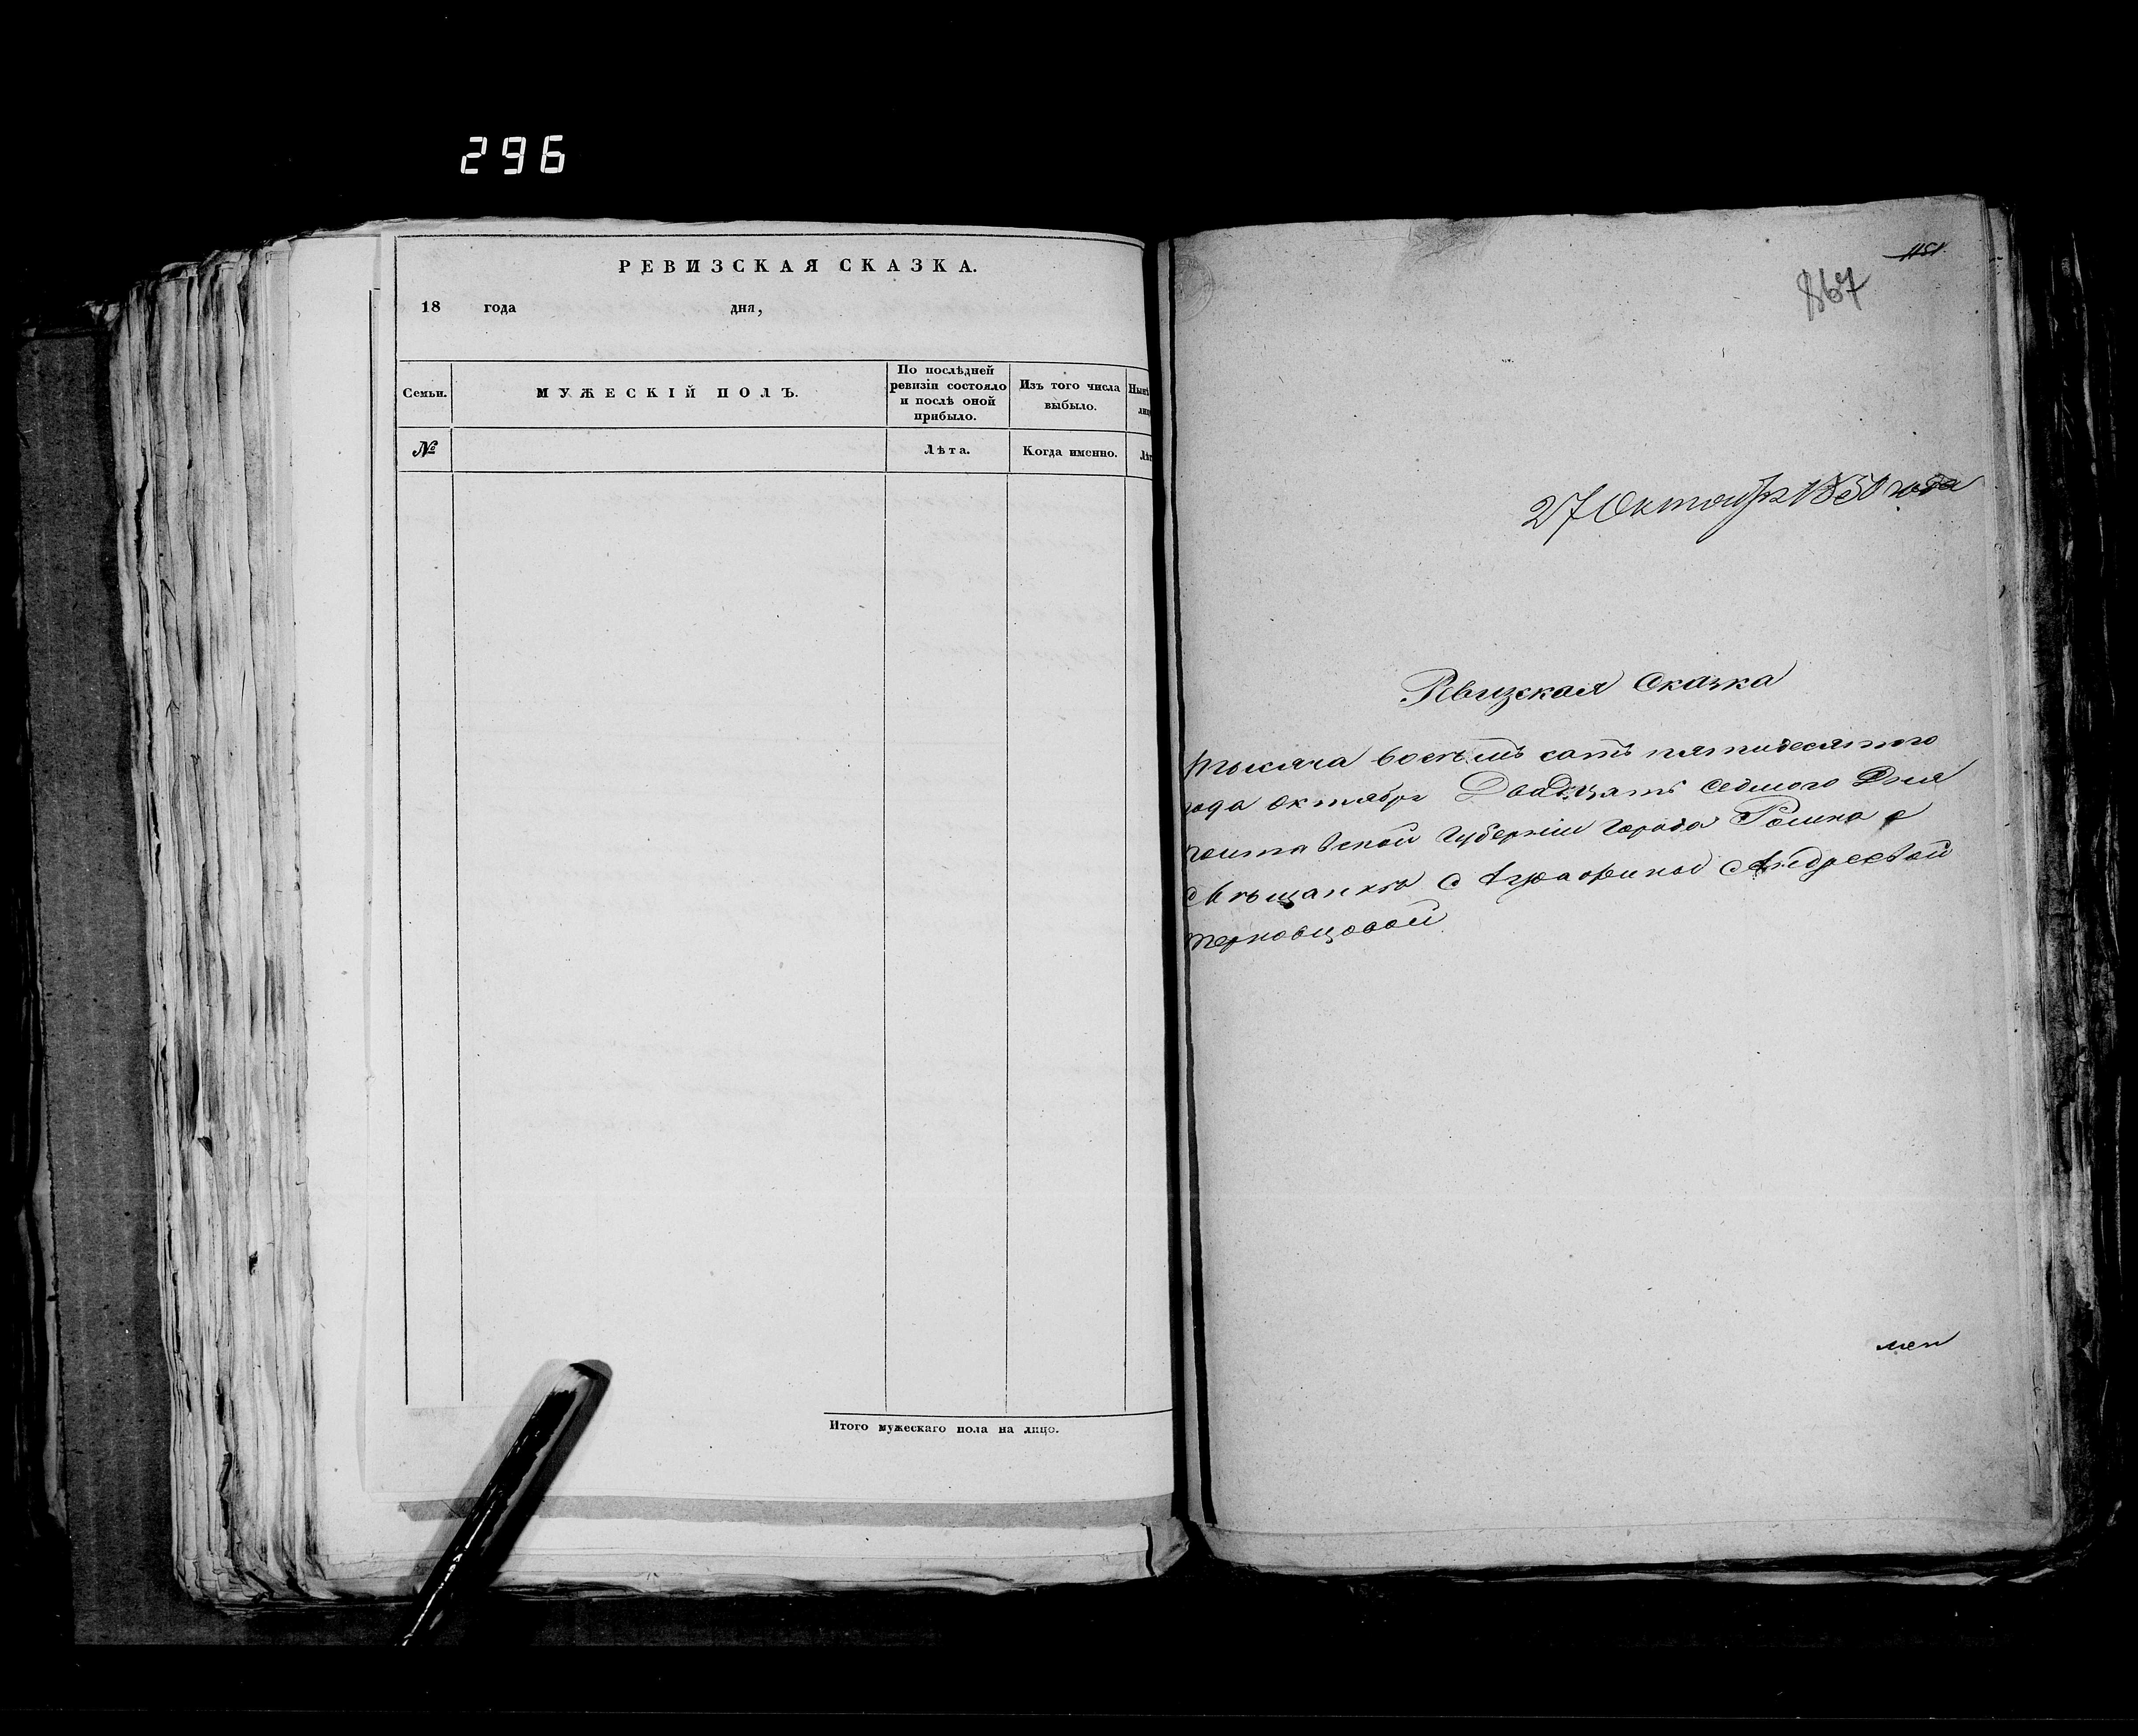 296
РЕВИЗСКАЯ СКАЗКА.
18 года дня,
Семьи.
МУЖЕСКІЙ ПОЛЪ.
По послѣдней
ревизіи состояло
и послѣ оной
прибыло.
Изъ того числа
выбыло.
№
Лѣта.
Когда именно.
Итого мужескаго пола на лицо.
867
27 Октября 1850 года
Ревизская Сказка
тысяча восѣмъ сотъ пятидесятого
года октября Двадцать седмого Дня
Губерніи города Ромна о
мѣщанкѣ Андреевой